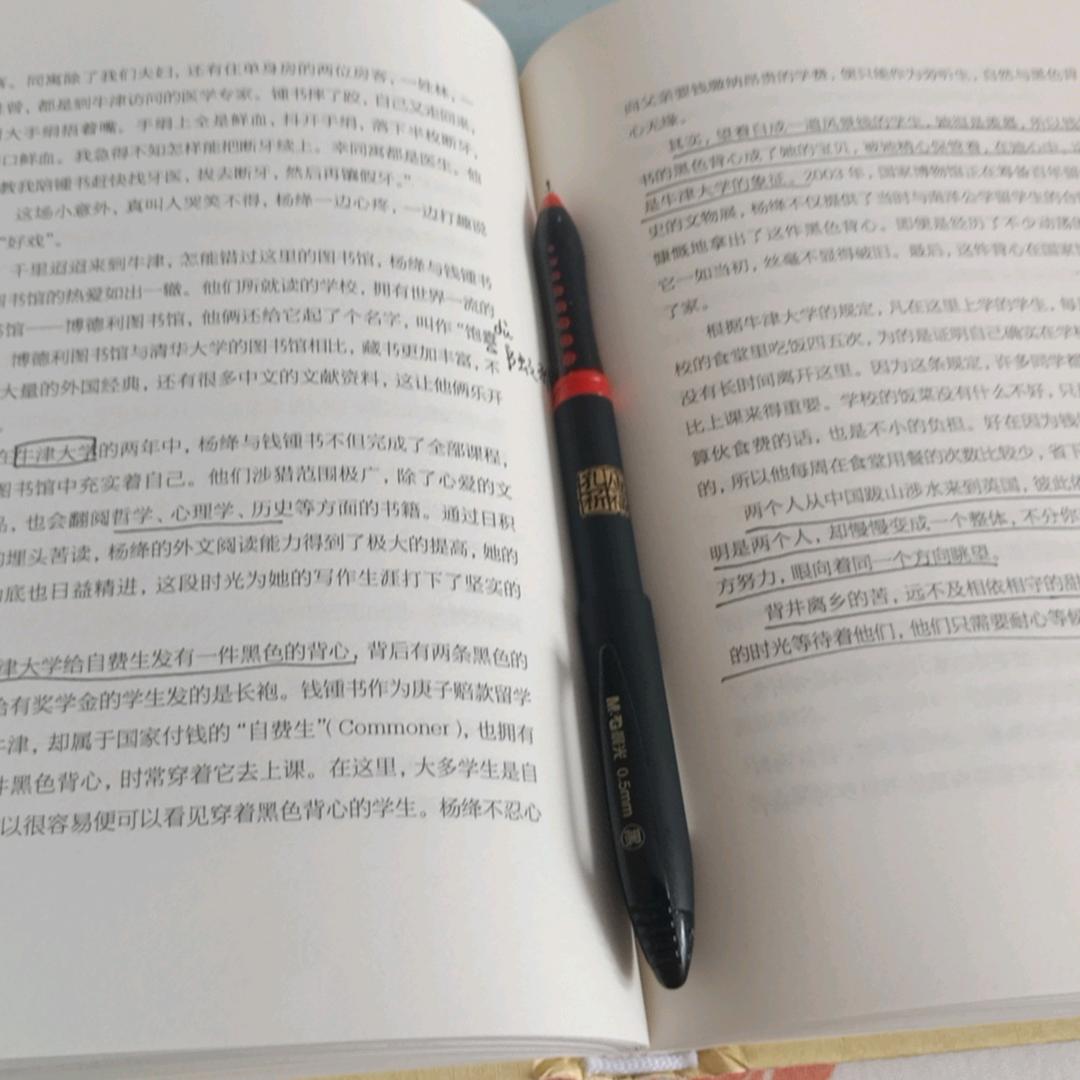 客。同寓除了我们夫妇，还有住单身房的两位房客，一姓林，一
曾，都是到牛津访问的医学专家。锺书摔了跤，自己又走回来，
大手绢捂着嘴。手绢上全是鲜血，抖开手绢，落下半枚断牙，
口鲜血。我急得不知怎样能把断牙续上。幸同寓都是医生。他
教我陪锺书赶快找牙医，拔去断牙，然后再镶假牙。”
这场小意外，真叫人哭笑不得，杨绛一边心疼，一边打趣说
“好戏”。
千里迢迢来到牛津，怎能错过这里的图书馆，杨绛与钱锺书
图书馆的热爱如出一辙。他们所就读的学校，拥有世界一流的
书馆——博德利图书馆，他俩还给它起了个名字，叫作“饱蠹
dù
博德利图书馆与清华大学的图书馆相比，藏书更加丰富，不
大量的外国经典，还有很多中文的文献资料，这让他俩乐开
在牛津大学的两年中，杨绛与钱锺书不但完成了全部课程，
图书馆中充实着自己。他们涉猎范围极广，除了心爱的文
品，也会翻阅哲学、心理学、历史等方面的书籍。通过日积
的埋头苦读，杨绛的外文阅读能力得到了极大的提高，她的
功底也日益精进，这段时光为她的写作生涯打下了坚实的
津大学给自费生发有一件黑色的背心，背后有两条黑色的
给有奖学金的学生发的是长袍。钱锺书作为庚子赔款留学
牛津，却属于国家付钱的“自费生”（Commoner），也拥有
件黑色背心，时常穿着它去上课。在这里，大多学生是自
以很容易便可以看见穿着黑色背心的学生。杨绛不忍心
向父亲要钱缴纳昂贵的学费，便只能作为旁听生，自然与黑色背
心无缘。
其实，望着自成一道风景线的学生，她很是羡慕，所以钱
书的黑色背心成了她的宝贝，被她精心保管着，在她心中，这
是牛津大学的象征。2003年，国家博物馆正在筹备百年留
史的文物展，杨绛不仅提供了当时与南洋公学留学生的合
慷慨地拿出了这件黑色背心。即便是经历了不少动荡
它一如当初，丝毫不显得破旧。最后，这件背心在国家
了家。
根据牛津大学的规定，凡在这里上学的学生，每
校的食堂里吃饭四五次，为的是证明自己确实在学校
没有长时间离开这里。因为这条规定，许多同学都
比上课来得重要。学校的饭菜没有什么不好，只
算伙食费的话，也是不小的负担。好在因为钱
的，所以他每周在食堂用餐的次数比较少，省下
两个人从中国跋山涉水来到英国，彼此依
明是两个人，却慢慢变成一个整体，不分你
方努力，眼向着同一个方向眺望。
背井离乡的苦，远不及相依相守的甜
的时光等待着他们，他们只需要耐心等候
孔庙
祈福
M&G晨光 0.5mm 黑